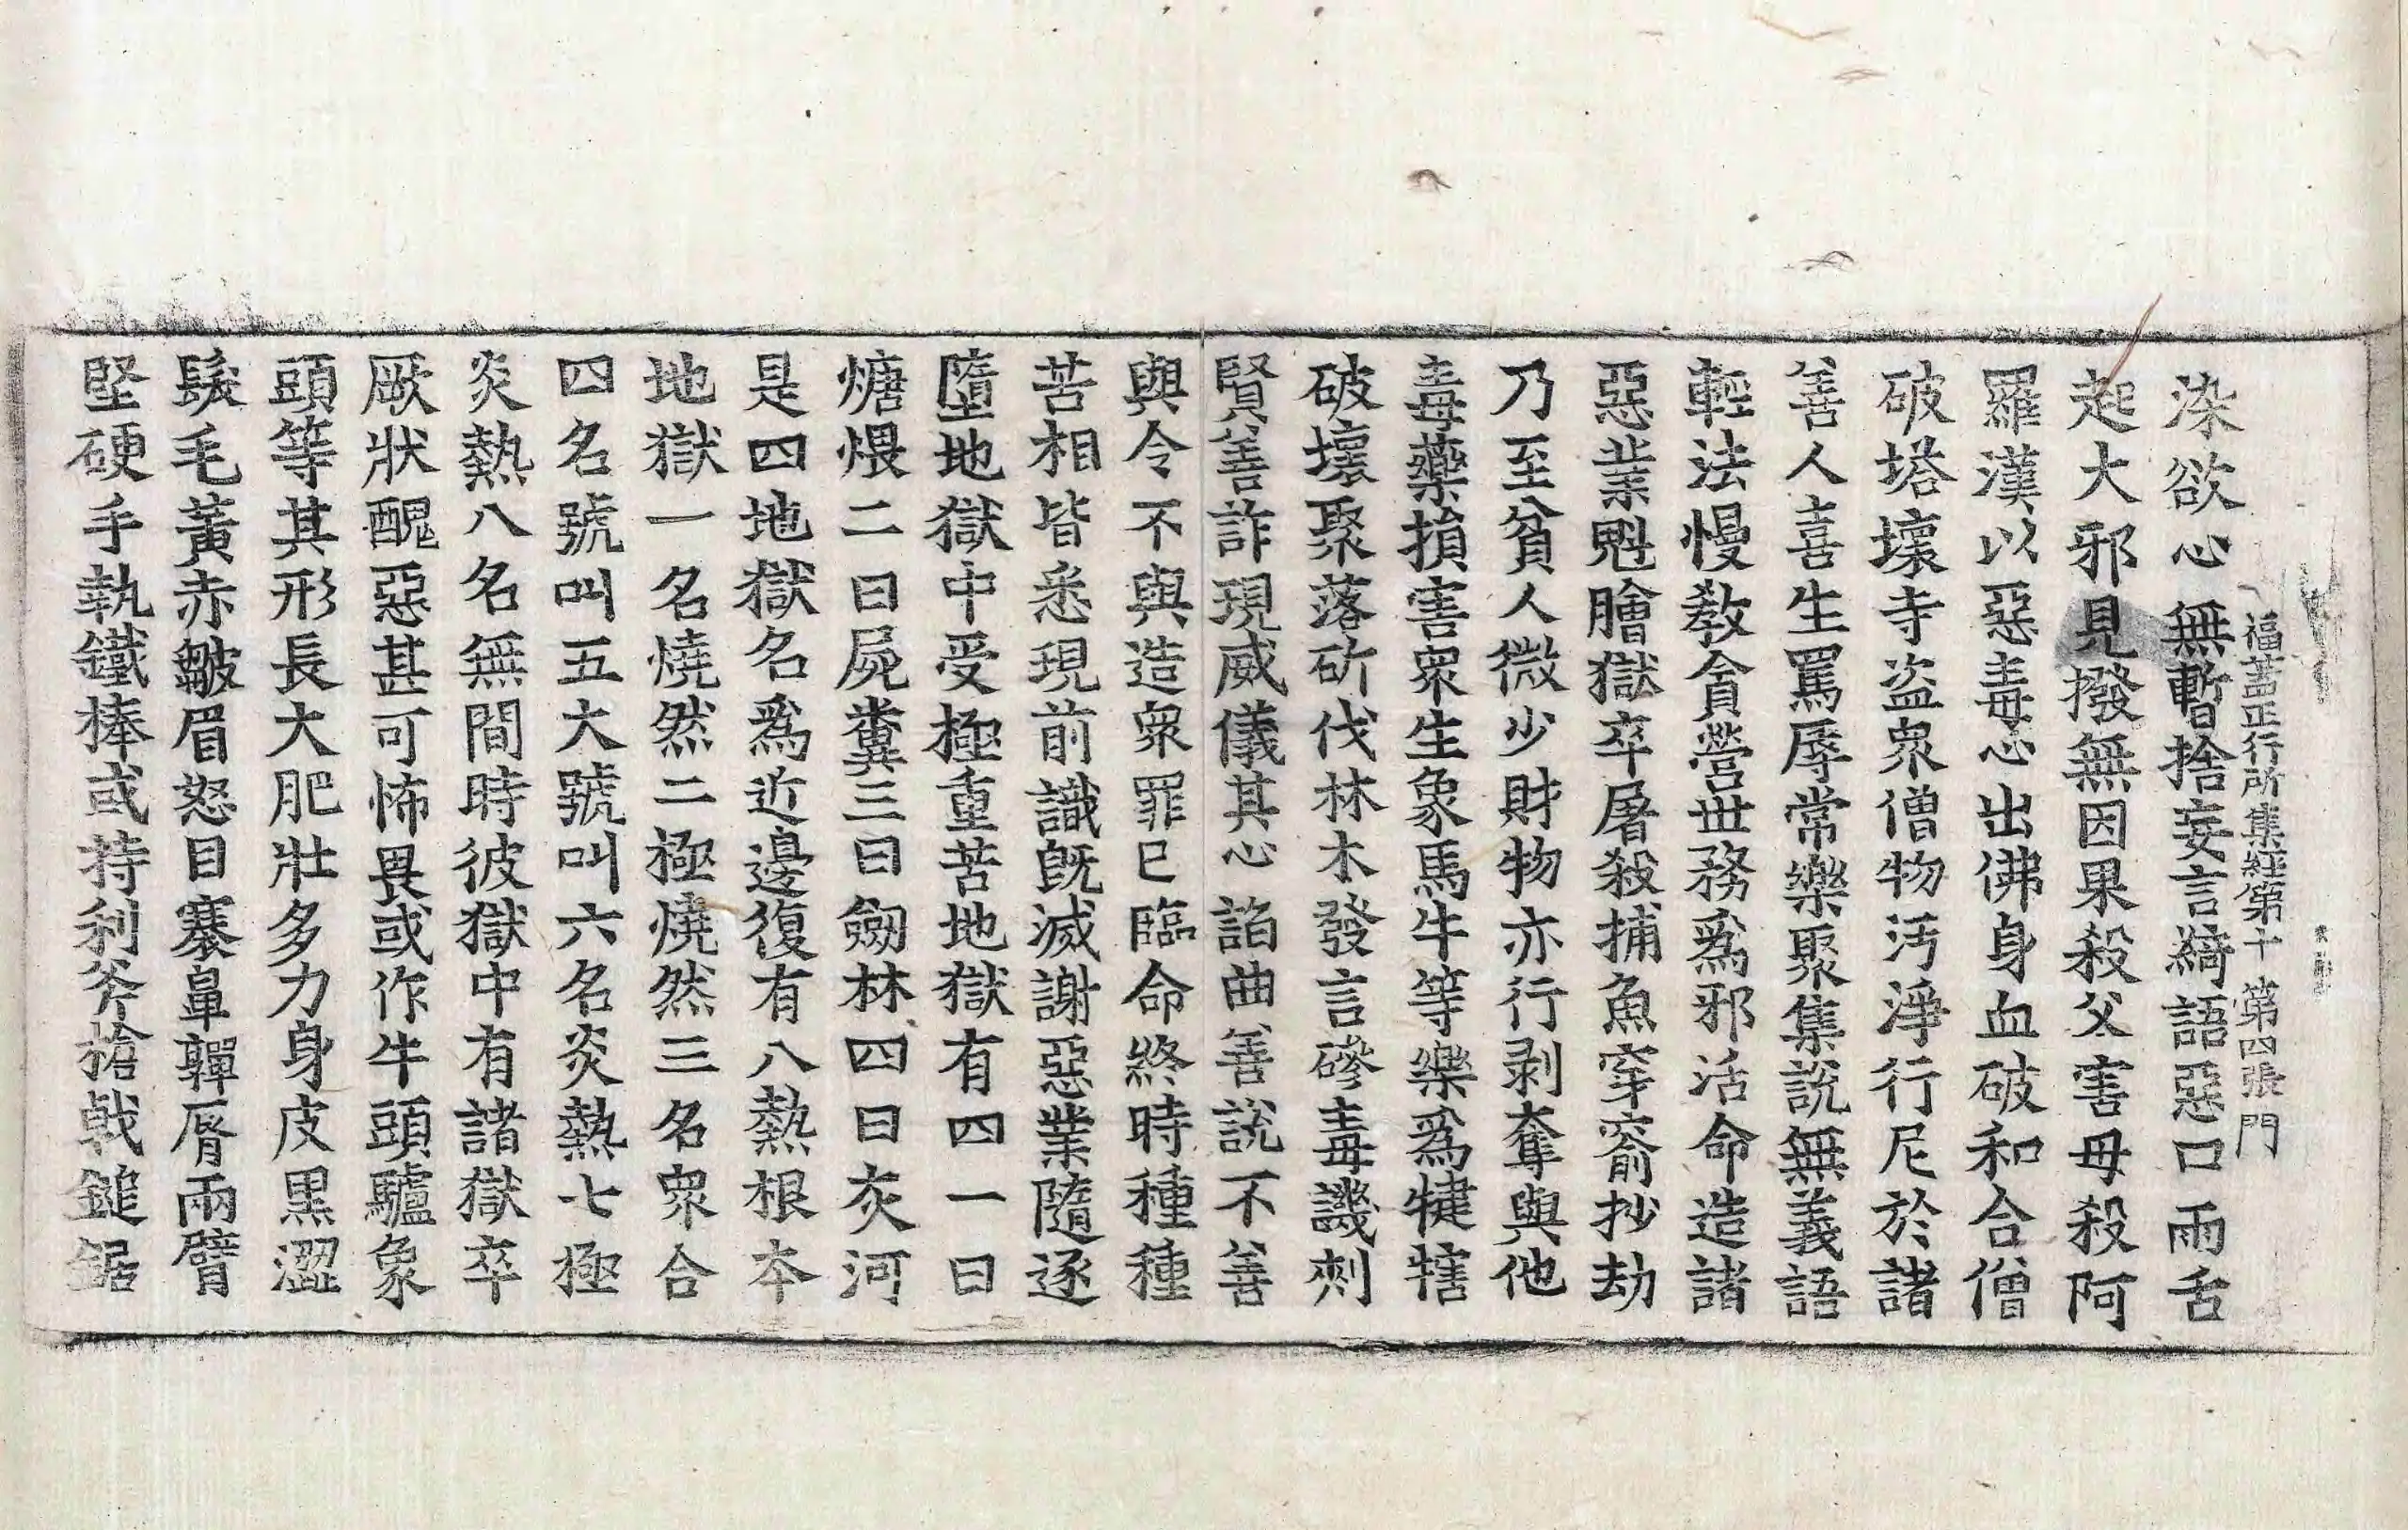 福蓋正行所集經第十 第四張 門
染欲心無暫捨妄言綺語惡口兩舌
起大邪見撥無因果殺父害母殺阿
羅漢以惡毒心出佛身血破和合僧
破塔壞寺盗衆僧物汚淨行尼於諸
善人喜生罵辱常樂聚集說無義語
輕法慢教貪營世務爲邪活命造諸
惡業魁膾獄卒屠殺捕魚穿窬抄劫
乃至貧人微少財物亦行剥奪與他
毒藥損害衆生象馬牛等樂爲犍犗
破壞聚落斫伐林木發言磣毒譏刺
賢善詐現威儀其心諂曲善說不善
與令不與造衆罪已臨命終時種種
苦相皆悉現前識旣滅謝惡業隨逐
墮地獄中受極重苦地獄有四一曰
煻煨二曰屍糞三曰劒林四曰灰河
是四地獄名爲近邊復有八熱根本
地獄一名燒然二極燒然三名衆合
四名號叫五大號叫六名炎熱七極
炎熱八名無間時彼獄中有諸獄卒
厥狀醜惡甚可怖畏或作牛頭驢象
頭等其形長大肥壯多力身皮黑澀
髮毛黃赤皺眉怒目褰鼻嚲脣兩臂
堅硬手執鐵棒或持利斧槍戟鎚鋸